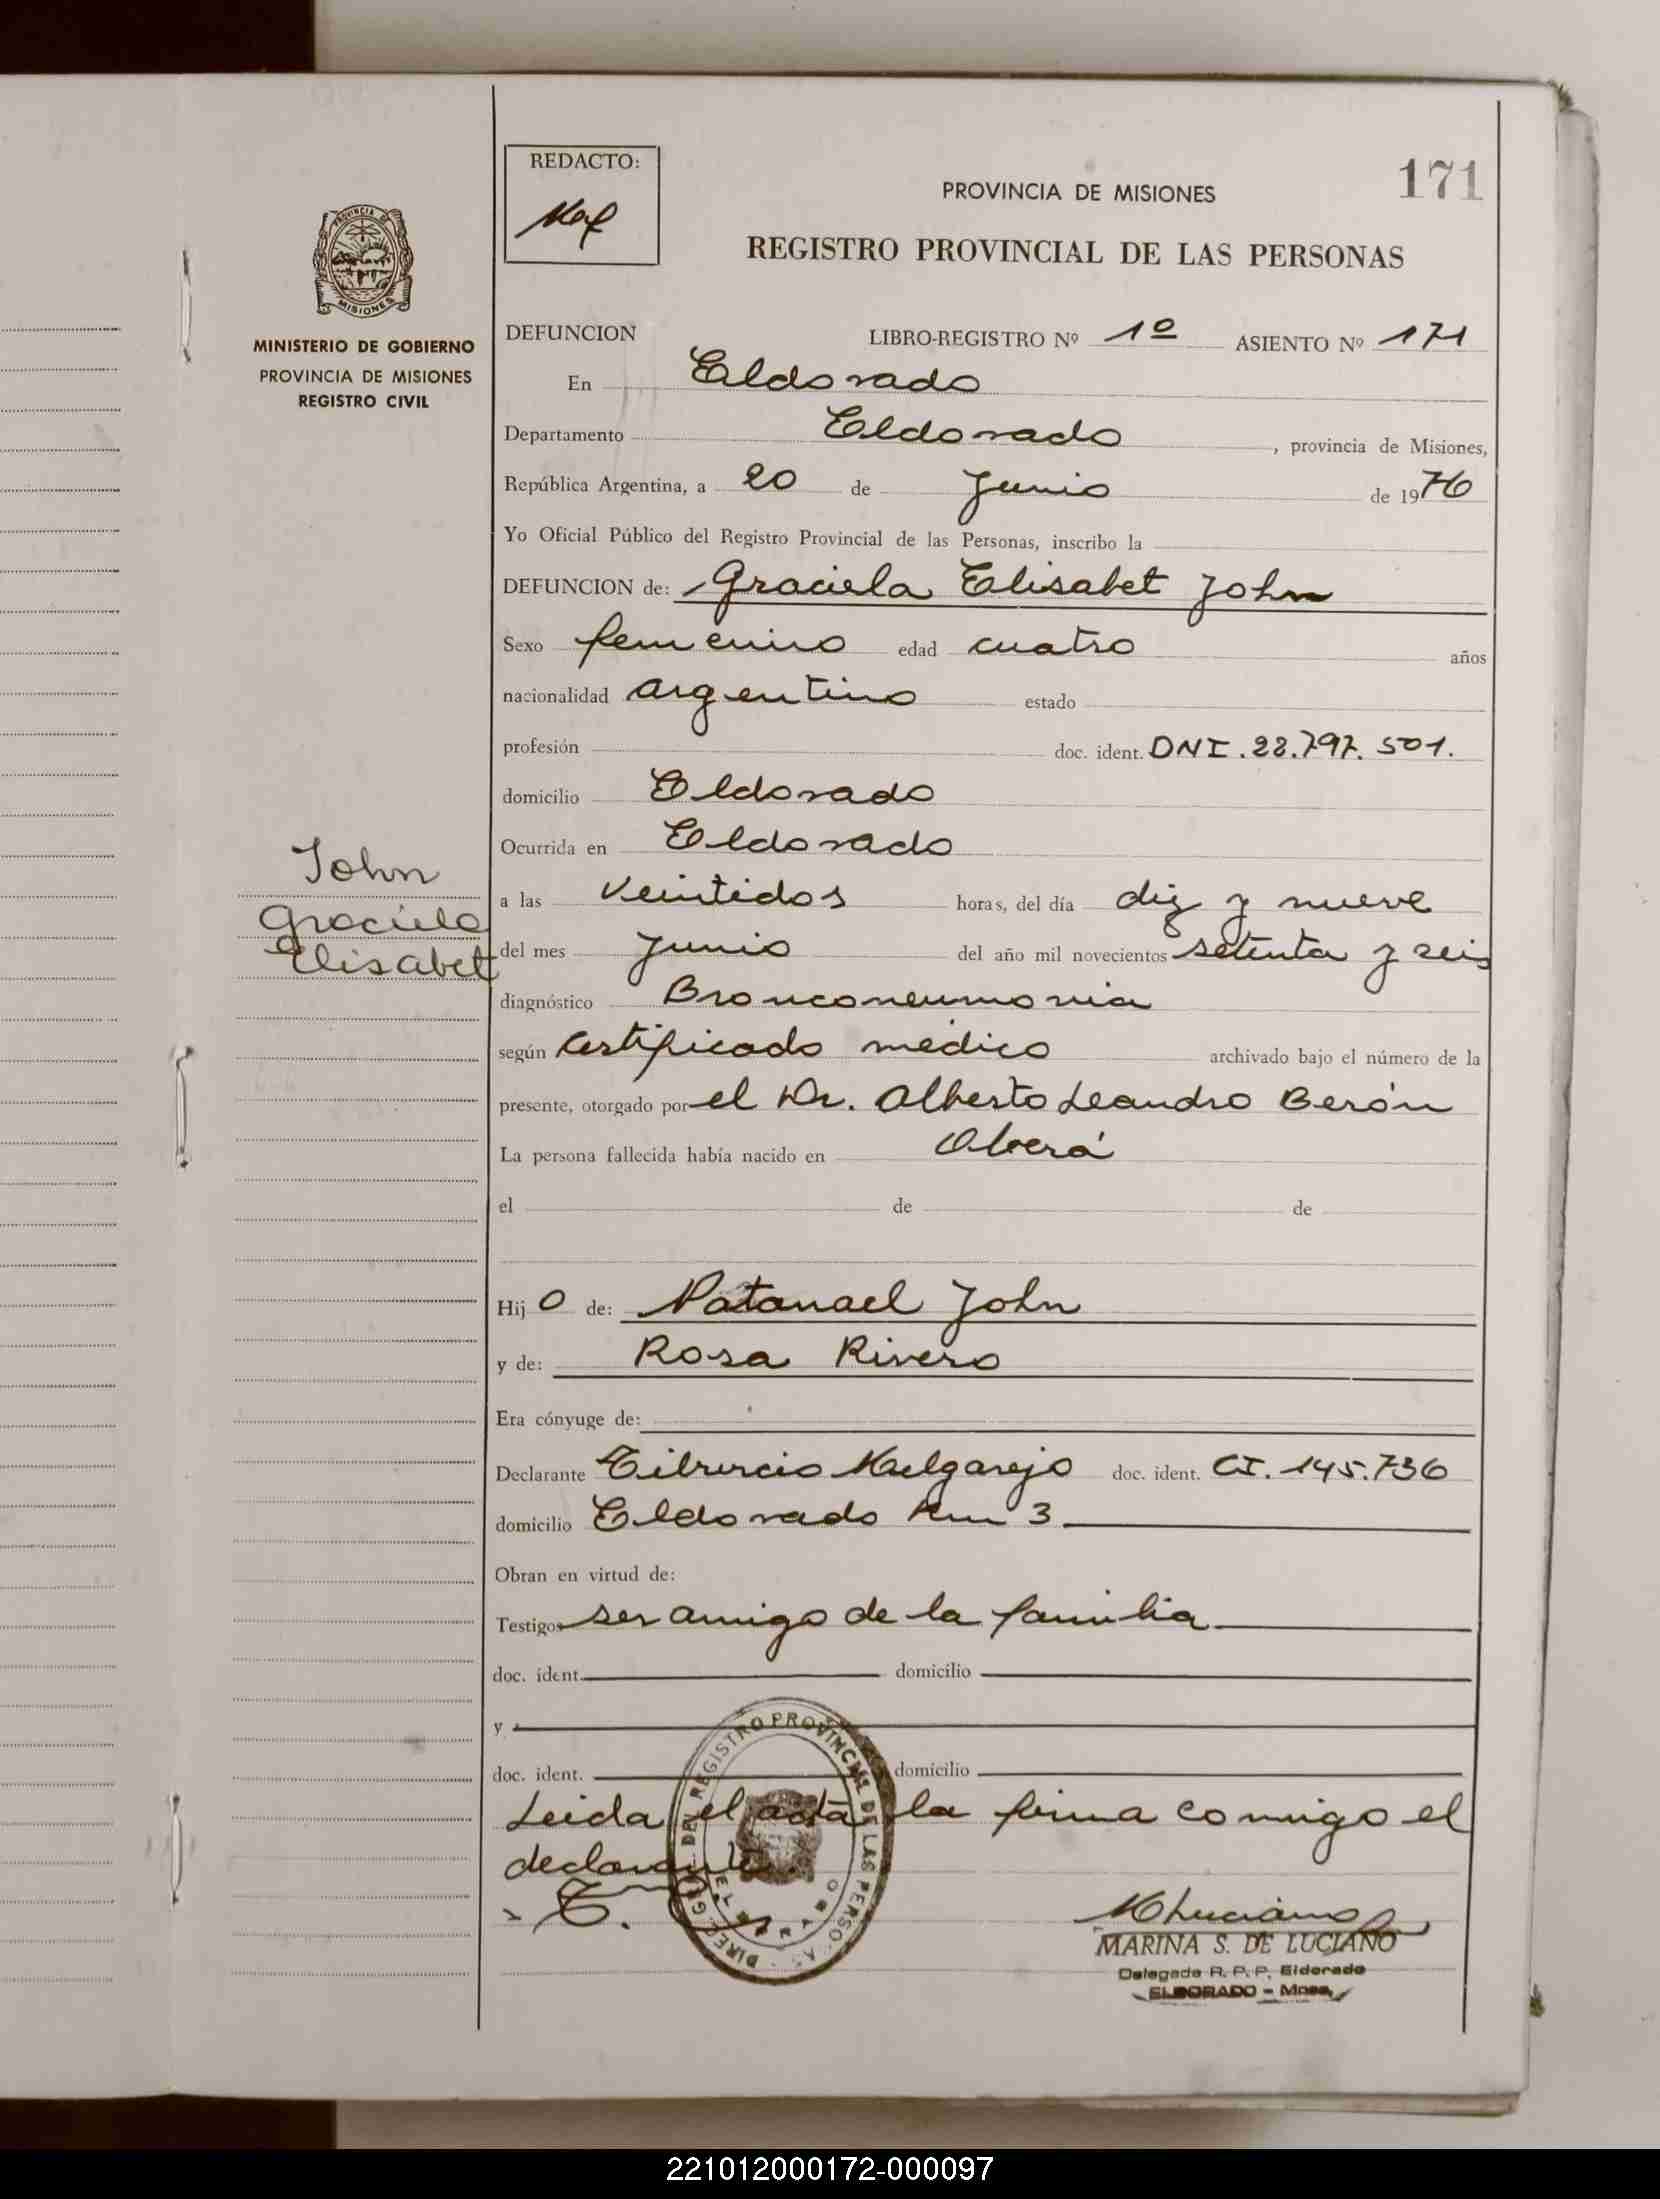 REDACTO:
171
PROVINCIA DE MISIONES
REGISTRO PROVINCIAL DE LAS PERSONAS
PROVINCIA DE
MISIONES
MINISTERIO DE GOBIERNO
PROVINCIA DE MISIONES
REGISTRO CIVIL
DEFUNCION LIBRO-REGISTRO Nº 1º ASIENTO Nº 171
En Eldorado
Departamento Eldorado, provincia de Misiones,
República Argentina, a 20 de Junio de 1976
Yo Oficial Público del Registro Provincial de las Personas, inscribo la
DEFUNCION de: Graciela Elisabet John
Sexo femenino edad cuatro años
nacionalidad argentino estado
profesión doc. ident. DNI. 22.797.501.
domicilio Eldorado
Ocurrida en Eldorado
John
Graciela
Elisabet
a las veintidos horas, del día diez y nueve
del mes Junio del año mil novecientos setenta y seis
diagnóstico Bronconeumonia
según certificado médico archivado bajo el número de la
presente, otorgado por el Dr. Alberto Leandro Berón
La persona fallecida había nacido en Oberá
el de de
Hijo de: Natanael John
y de: Rosa Rivero
Era cónyuge de:
Declarante Tiburcio Melgarejo doc. ident. CI. 145.736
domicilio Eldorado Km 3
Obran en virtud de:
Testigos ser amigo de la familia
doc. ident. domicilio
y
doc. ident. domicilio
Leida el acta la firma conmigo el
declarante.
MARINA S. DE LUCIANO
Delegada R. P. P. Eldorado
ELDORADO - Mnes.
221012000172-000097